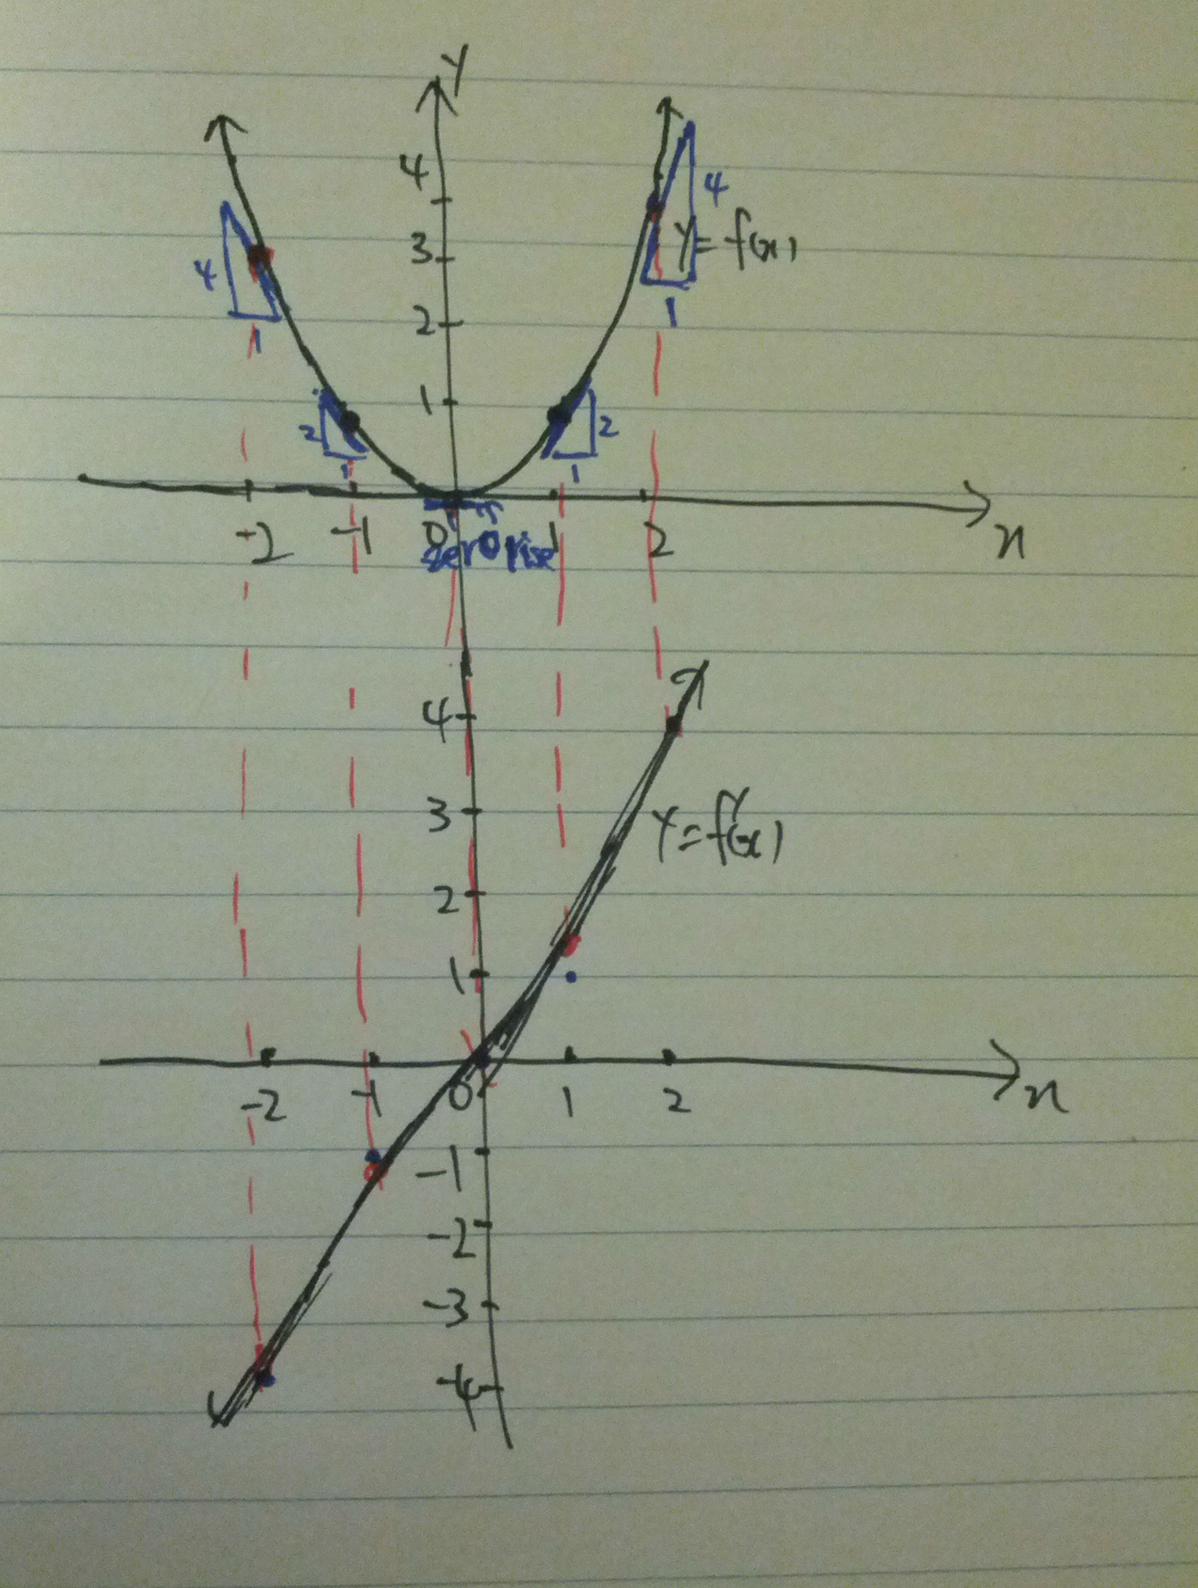 y
4
4
3
y = f(x)
4
2
1
1
1
2
2
1
1
-2
-1
0
1
2
x
zero rise
4
3
y = f'(x)
2
1
-2
-1
0
1
2
x
-1
-2
-3
-4